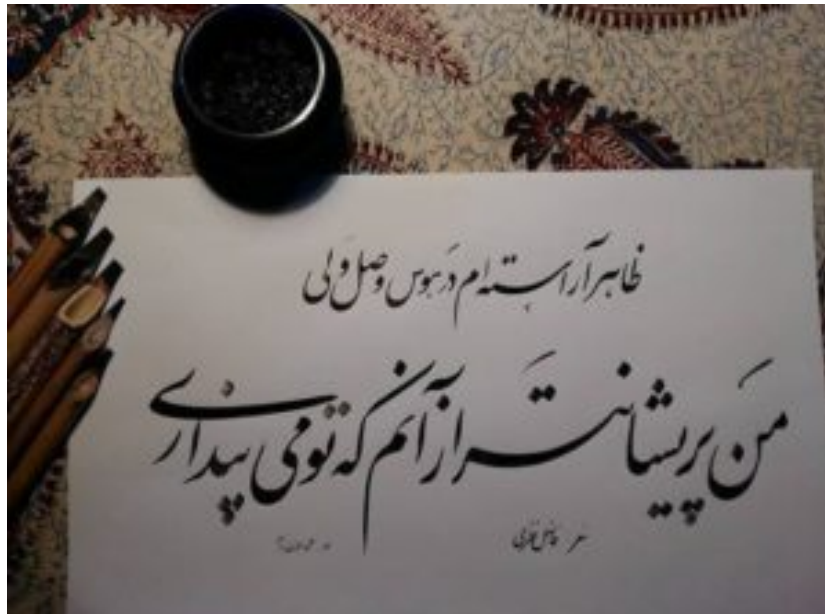 ظاهر آراسته‌ام در هوس وصل ولی
من پریشانتر از آنم که تو می‌پنداری